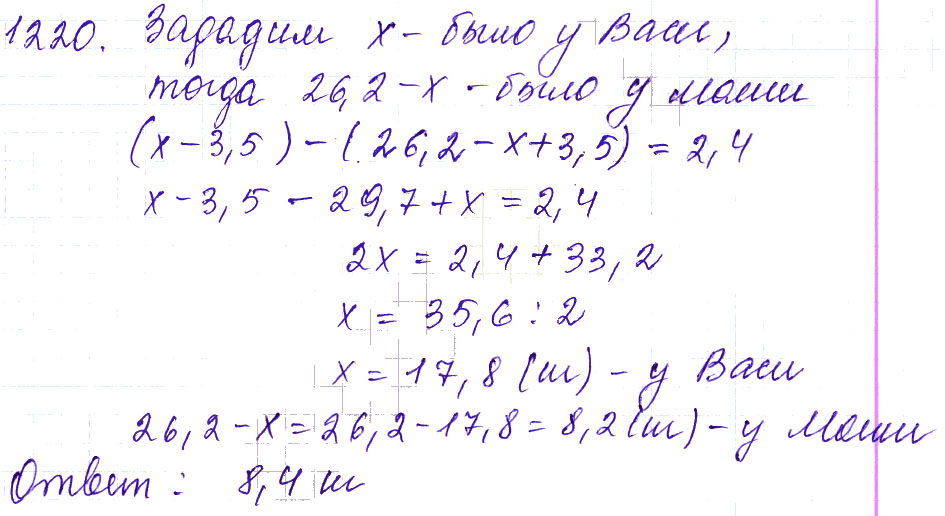 1220. Зададим x - было у Васи,
тогда 26,2 - x - было у Маши
(x - 3,5) - (26,2 - x + 3,5) = 2,4
x - 3,5 - 29,7 + x = 2,4
2x = 2,4 + 33,2
x = 35,6 : 2
x = 17,8 (м) - у Васи
26,2 - x = 26,2 - 17,8 = 8,2 (м) - у Маши
Ответ: 8,4 м